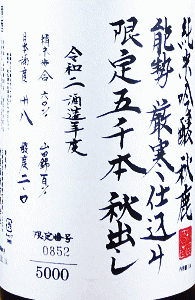 純米吟醸 秋鹿
能勢 厳寒仕込み
限定五千本 秋出し
令和二酒造年度
精米歩合 六〇% 山田錦 百%
日本酒度 十八 酸度 二・〇
限定番号
0852
5000